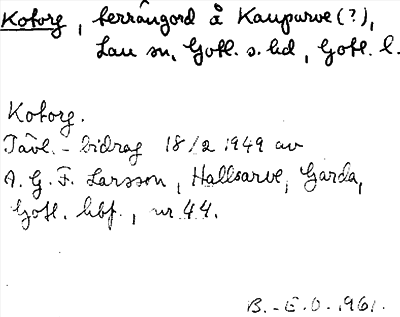 Koborg, terrängord å Kauparve (?),
Lau sn, Gotl. s. hd, Gotl. l.
Koborg.
Tävl.-bidrag 18/2 1949 av
A. G. F. Larsson, Hallsarve, Garda,
Gotl. hbf., nr 44.
B.-E.O. 1961.